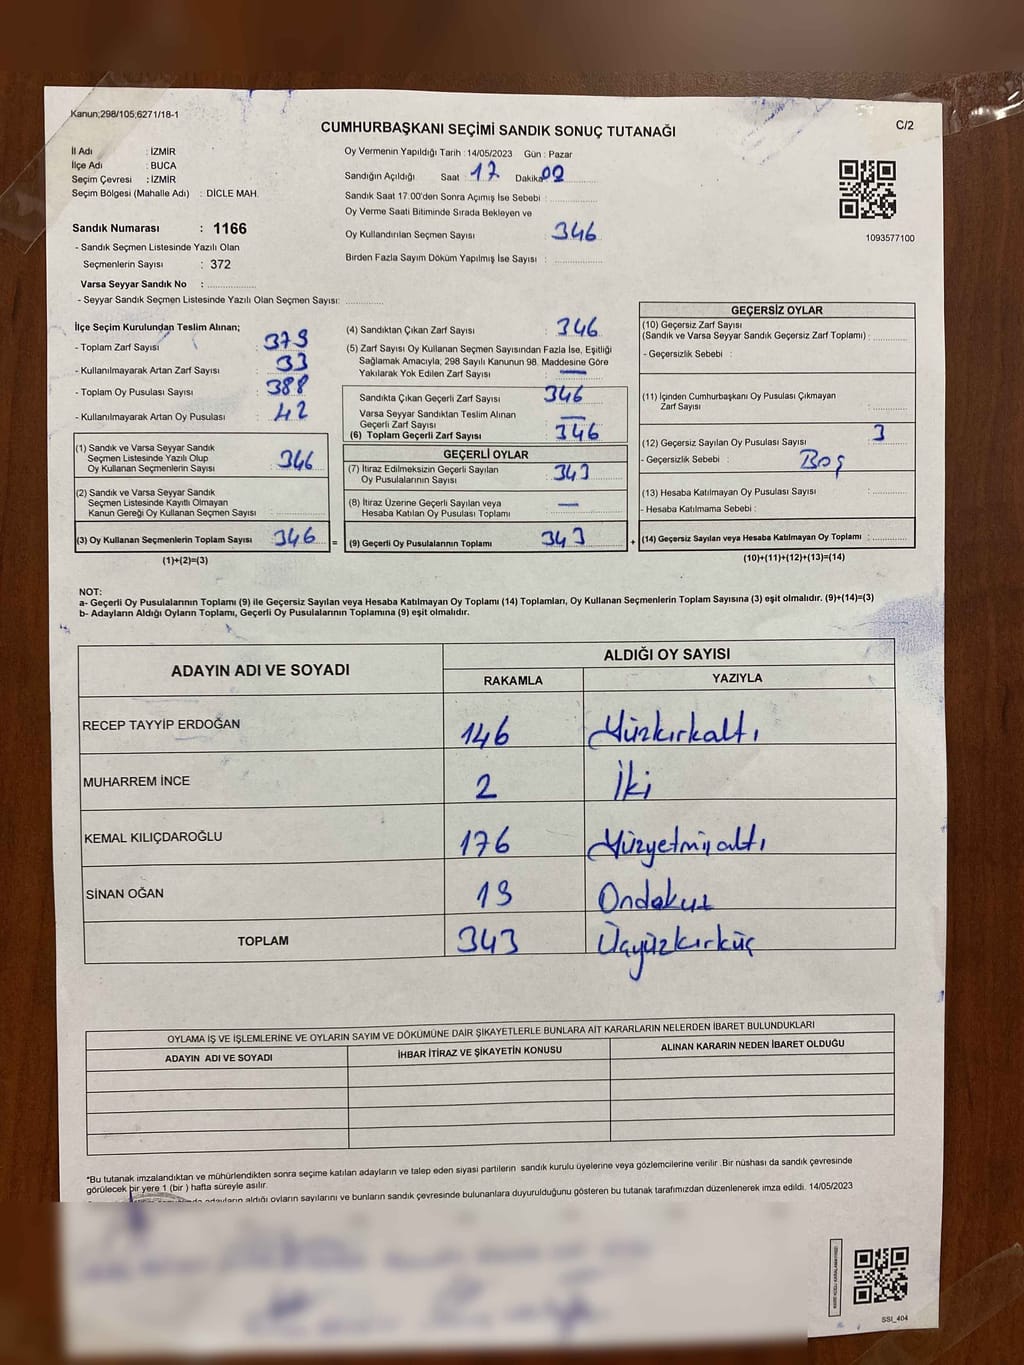 Kanun;298/105;6271/18-1
C/2
CUMHURBAŞKANI SEÇİMİ SANDIK SONUÇ TUTANAĞI
İl Adı : İZMİR
İlçe Adı : BUCA
Seçim Çevresi : İZMİR
Seçim Bölgesi (Mahalle Adı) : DİCLE MAH.
Sandık Numarası : 1166
- Sandık Seçmen Listesinde Yazılı Olan
Seçmenlerin Sayısı : 372
Varsa Seyyar Sandık No :
- Seyyar Sandık Seçmen Listesinde Yazılı Olan Seçmen Sayısı:
Oy Vermenin Yapıldığı Tarih : 14/05/2023 Gün : Pazar
Sandığın Açıldığı Saat : 17 Dakika 02
Sandık Saat 17:00'den Sonra Açımış İse Sebebi :
Oy Verme Saati Bitiminde Sırada Bekleyen ve
Oy Kullandırılan Seçmen Sayısı : 346
Birden Fazla Sayım Döküm Yapılmış İse Sayısı :
1093577100
İlçe Seçim Kurulundan Teslim Alınan;
- Toplam Zarf Sayısı : 379
- Kullanılmayarak Artan Zarf Sayısı : 33
- Toplam Oy Pusulası Sayısı : 388
- Kullanılmayarak Artan Oy Pusulası : 42
(1) Sandık ve Varsa Seyyar Sandık
Seçmen Listesinde Yazılı Olup
Oy Kullanan Seçmenlerin Sayısı : 346
(2) Sandık ve Varsa Seyyar Sandık
Seçmen Listesinde Kayıtlı Olmayan
Kanun Gereği Oy Kullanan Seçmen Sayısı :
(3) Oy Kullanan Seçmenlerin Toplam Sayısı : 346 =
(1)+(2)=(3)
(4) Sandıktan Çıkan Zarf Sayısı : 346
(5) Zarf Sayısı Oy Kullanan Seçmen Sayısından Fazla İse, Eşitliği
Sağlamak Amacıyla; 298 Sayılı Kanunun 98. Maddesine Göre
Yakılarak Yok Edilen Zarf Sayısı : —
Sandıkta Çıkan Geçerli Zarf Sayısı : 346
Varsa Seyyar Sandıktan Teslim Alınan
Geçerli Zarf Sayısı : —
(6) Toplam Geçerli Zarf Sayısı : 346
GEÇERLİ OYLAR
(7) İtiraz Edilmeksizin Geçerli Sayılan
Oy Pusulalarının Sayısı : 343
(8) İtiraz Üzerine Geçerli Sayılan veya
Hesaba Katılan Oy Pusulası Toplamı : —
(9) Geçerli Oy Pusulalarının Toplamı : 343 +
GEÇERSİZ OYLAR
(10) Geçersiz Zarf Sayısı
(Sandık ve Varsa Seyyar Sandık Geçersiz Zarf Toplamı) :
- Geçersizlik Sebebi :
(11) İçinden Cumhurbaşkanı Oy Pusulası Çıkmayan
Zarf Sayısı :
(12) Geçersiz Sayılan Oy Pusulası Sayısı : 3
- Geçersizlik Sebebi : Boş
(13) Hesaba Katılmayan Oy Pusulası Sayısı :
- Hesaba Katılmama Sebebi :
(14) Geçersiz Sayılan veya Hesaba Katılmayan Oy Toplamı :
(10)+(11)+(12)+(13)=(14)
NOT:
a- Geçerli Oy Pusulalarının Toplamı (9) ile Geçersiz Sayılan veya Hesaba Katılmayan Oy Toplamı (14) Toplamları, Oy Kullanan Seçmenlerin Toplam Sayısına (3) eşit olmalıdır. (9)+(14)=(3)
b- Adayların Aldığı Oyların Toplamı, Geçerli Oy Pusulalarının Toplamına (9) eşit olmalıdır.
ADAYIN ADI VE SOYADI ALDIĞI OY SAYISI
RAKAMLA YAZIYLA
RECEP TAYYİP ERDOĞAN 146 Yüzkırkaltı
MUHARREM İNCE 2 İki
KEMAL KILIÇDAROĞLU 176 Yüzyetmişaltı
SİNAN OĞAN 19 Ondokuz
TOPLAM 343 Üçyüzkırküç
OYLAMA İŞ VE İŞLEMLERİNE VE OYLARIN SAYIM VE DÖKÜMÜNE DAİR ŞİKAYETLERLE BUNLARA AİT KARARLARIN NELERDEN İBARET BULUNDUKLARI
ADAYIN ADI VE SOYADI İHBAR İTİRAZ VE ŞİKAYETİN KONUSU ALINAN KARARIN NEDEN İBARET OLDUĞU
*Bu tutanak imzalandıktan ve mühürlendikten sonra seçime katılan adayların ve talep eden siyasi partilerin sandık kurulu üyelerine veya gözlemcilerine verilir .Bir nüshası da sandık çevresinde
görülecek bir yere 1 (bir ) hafta süreyle asılır.
adayların aldığı oyların sayılarını ve bunların sandık çevresinde bulunanlara duyurulduğunu gösteren bu tutanak tarafımızdan düzenlenerek imza edildi. 14/05/2023
SSI_404